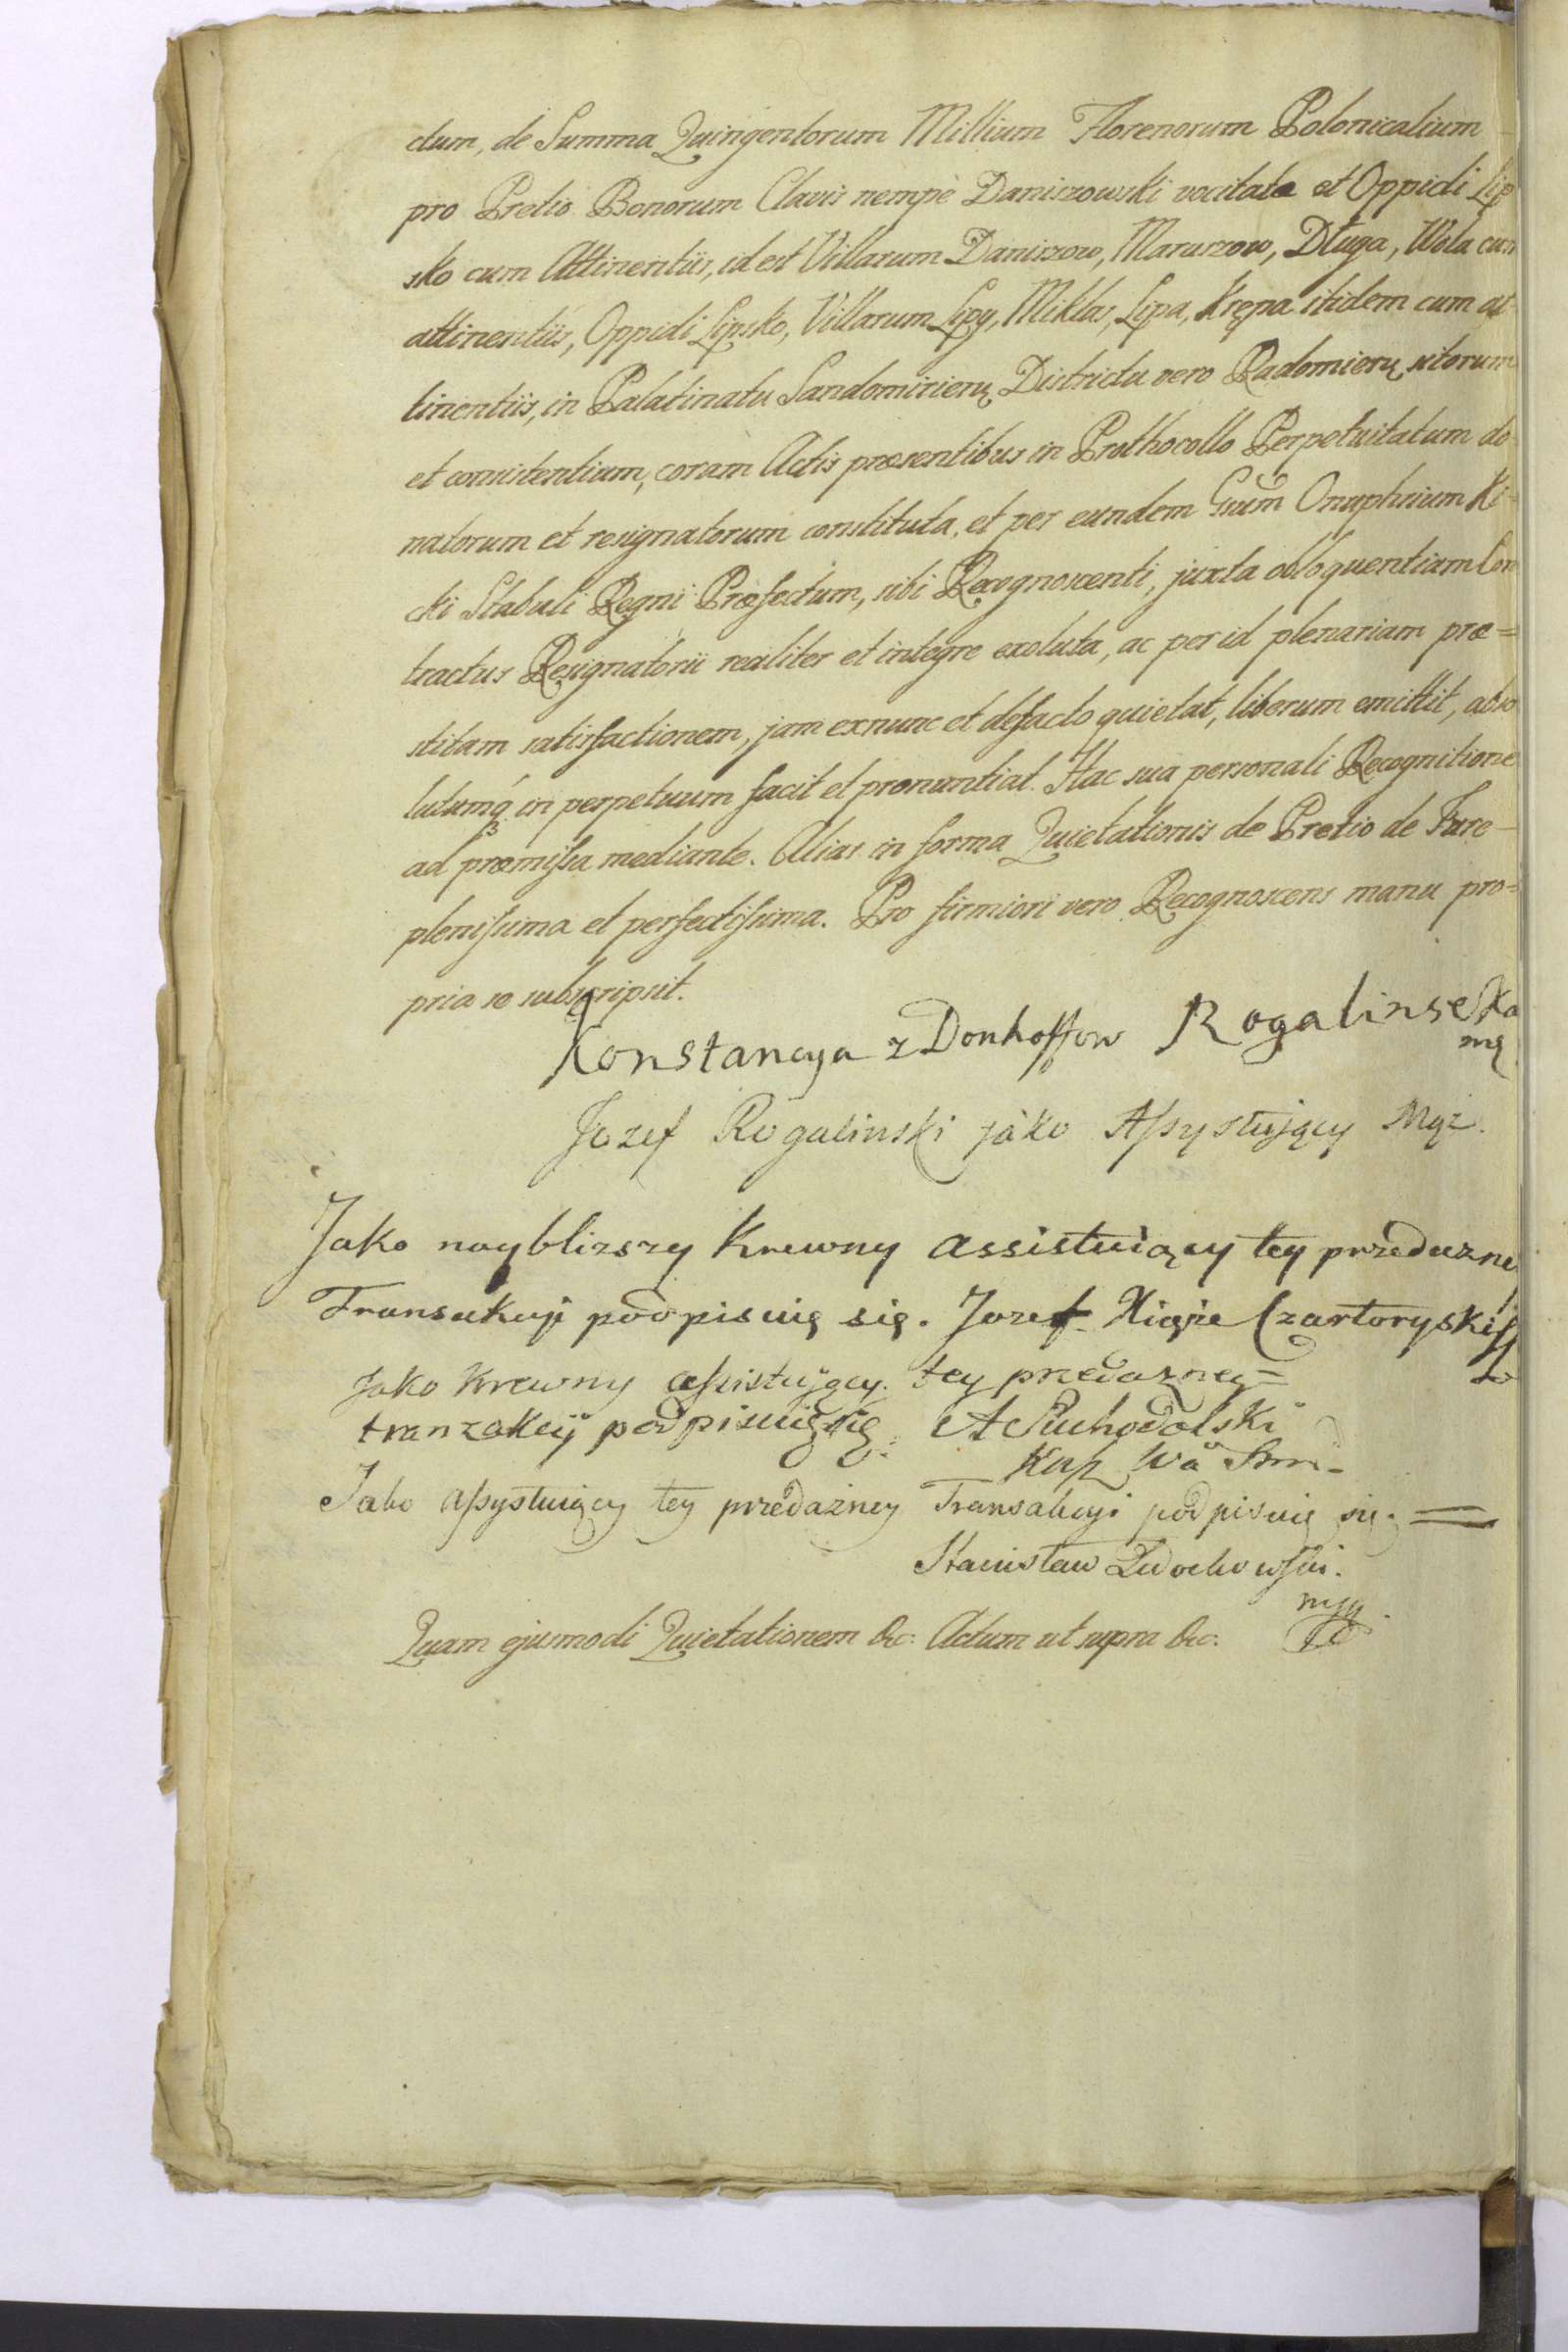 ctum, de Summa Quingentorum Millium Florenorum Polonicalium
pro Pretio Bonorum Clavis nempè Daniszowski vocitatæ et Oppidi Lip
sko cum Attinentiis, id est Villarum Daniszow, Maruszow, Długa, Wola cum
attinentiis, Oppidi Lipsko, Villarum Lipy, Miklas, Lipa, Krępa itidem cum at
tinentiis, in Palatinatu Sandomirien Districtu vero Radomien sitorum
et consistentium, coram Actis præsentibus in Prothocollo Perpetuitatum do
natorum et resignatorum constituta, et per eundem Gsum Onuphrium Ki=
cki Stabuli Regni Præfectum, sibi Recognoscenti, juxta obloquentiam Con
tractus Resignatorii realiter et integre exoluta, ac per id plenariam præ=
stitam satisfactionem, jam exnunc et defacto quietat, liberum emittit, abso
lutumq in perpetuum facit et pronuntiat. Hac sua personali Recognitione
ad præmissa mediante. Alias in forma Quietationis de Pretio de Jure
plenissima et perfectissima. Pro firmiori vero Recognoscens manu pro=
pria se subscripsit.
Konstancya z Donhoffow Rogalinska
mą
Jozef Rogalinski jáko Assystujący Mąz.
Jako nayblizszy Krewny assistuiący tey przedazney
Transakcyi podpisuię się. Jozef Xiąże Czartoryski
Jako Krewny assistujący tey przedazney=
tranzakcij podpisuię się. A Suchodolski
Kasz Wa Smi
Jako assystuiący tey przedażney Transakcyi podpisuię się. =
Stanisław
mpp
Quam ejusmodi Quietationem &c: Actum ut supra &c: